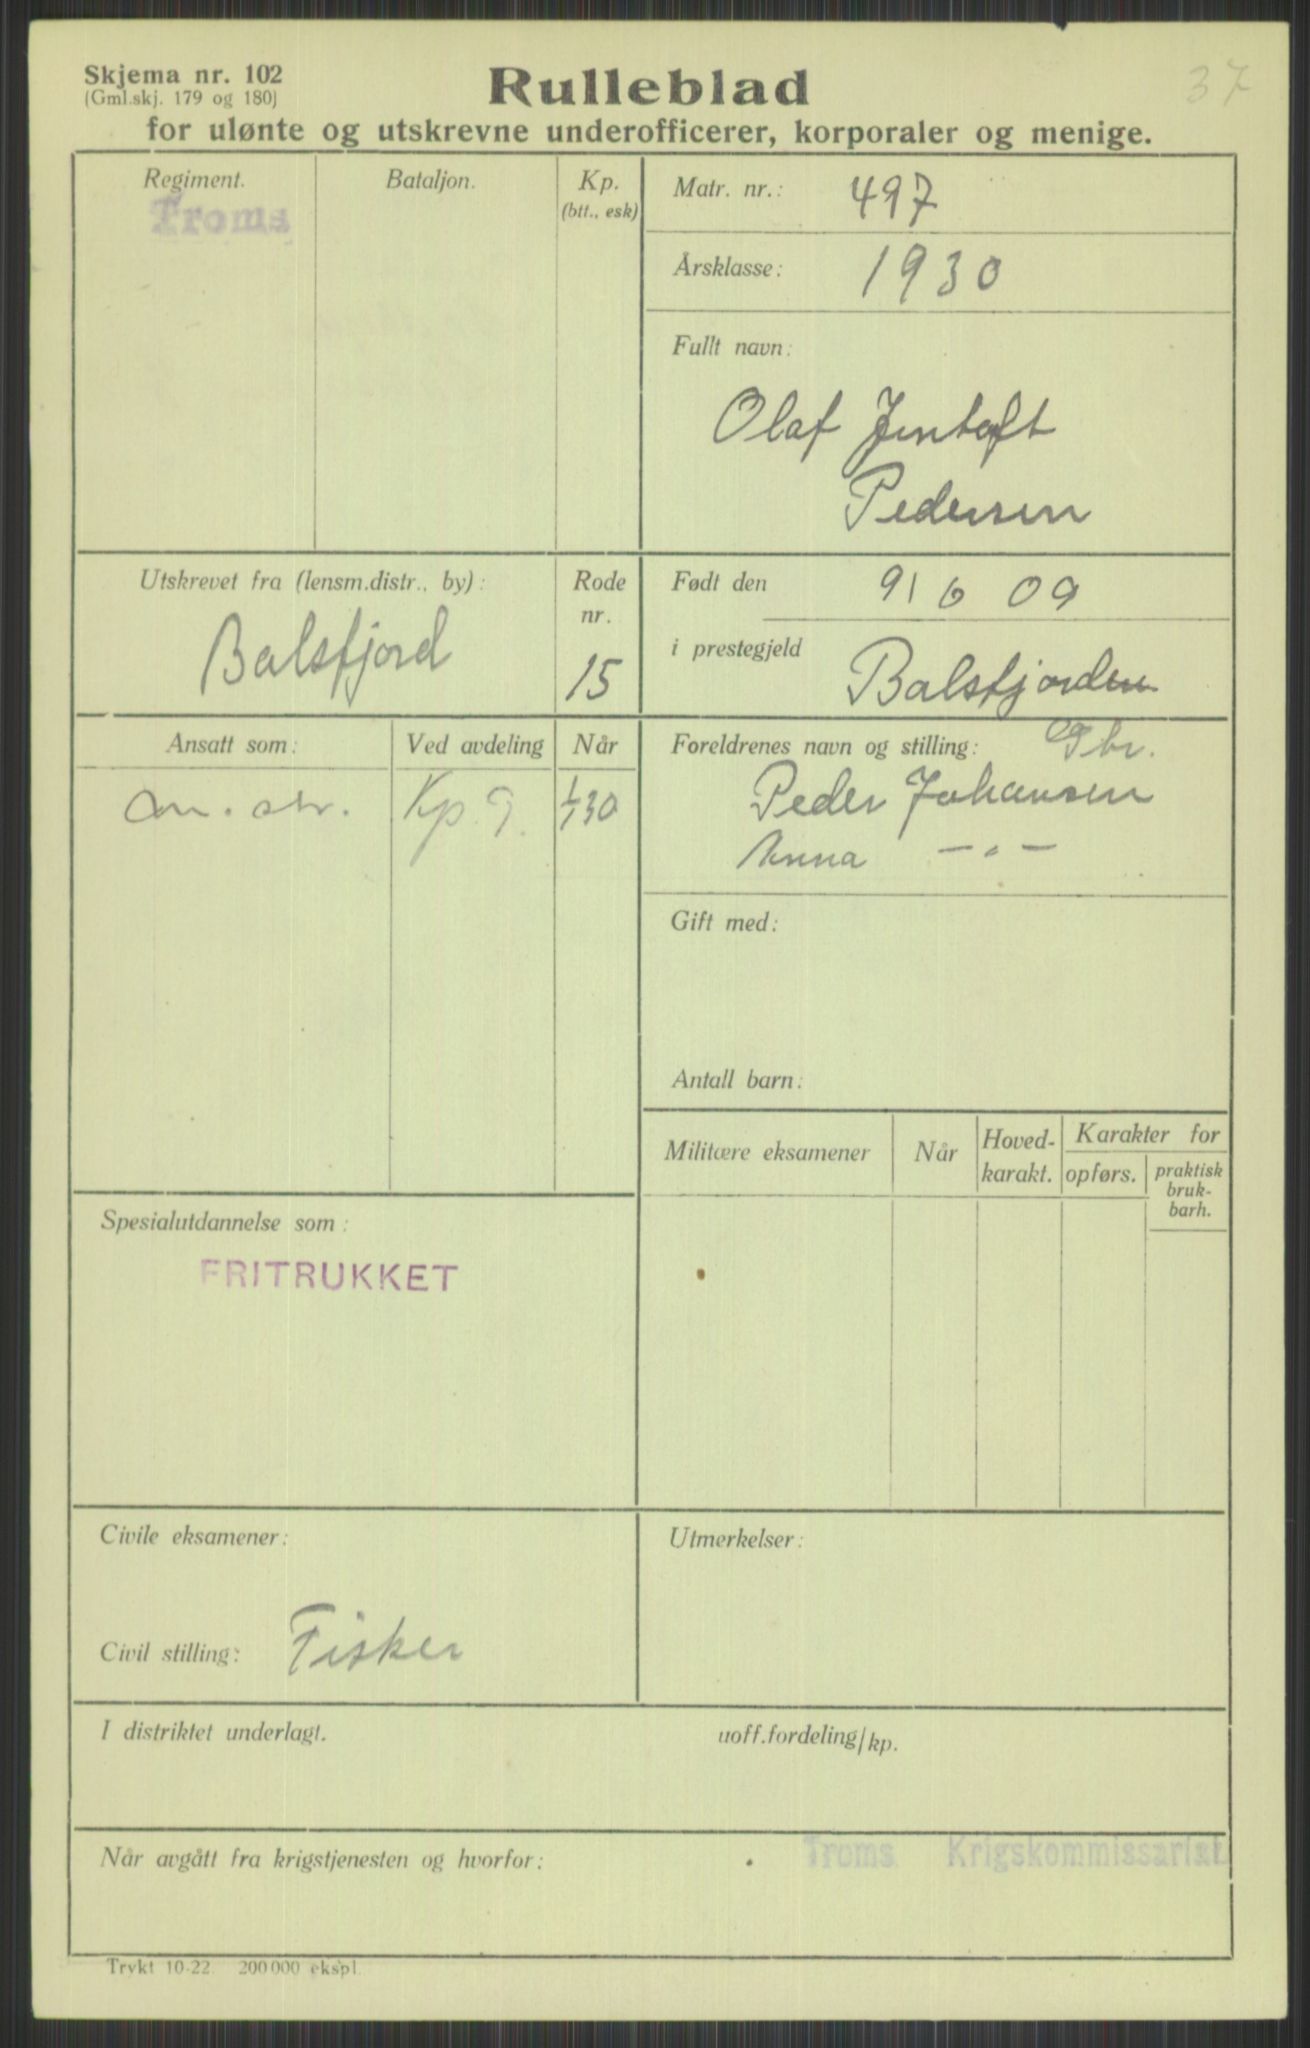 Skjema nr. 102
(Gml.skj. 179 og 180)
37
Rulleblad
for ulønte og utskrevne underofficerer, korporaler og menige.
Regiment.
Troms
Bataljon.
Kp.
(btt., esk)
Matr. nr.: 497
Årsklasse: 1930
Fullt navn:
Olaf Jentoft
Pedersen
Utskrevet fra (lensm.distr., by):
Balsfjord
Rode
nr.
15
Født den 9/6 09
i prestegjeld Balsfjorden
Ansatt som: Ved avdeling Når
Kp. 9. 1/1 30
Foreldrenes navn og stilling: Gbr.
Peder Johansen
Anna —„—
Gift med:
Antall barn:
Militære eksamener
Når
Hoved-
karakt.
Karakter for
opførs.
praktisk
bruk-
barh.
Spesialutdannelse som:
FRITRUKKET
Civile eksamener:
Civil stilling: Fisker
Utmerkelser:
I distriktet underlagt. uoff.fordeling/kp.
Når avgått fra krigstjenesten og hvorfor:
Troms Krigskommissariat
Trykt 10-22. 200 000 ekspl.